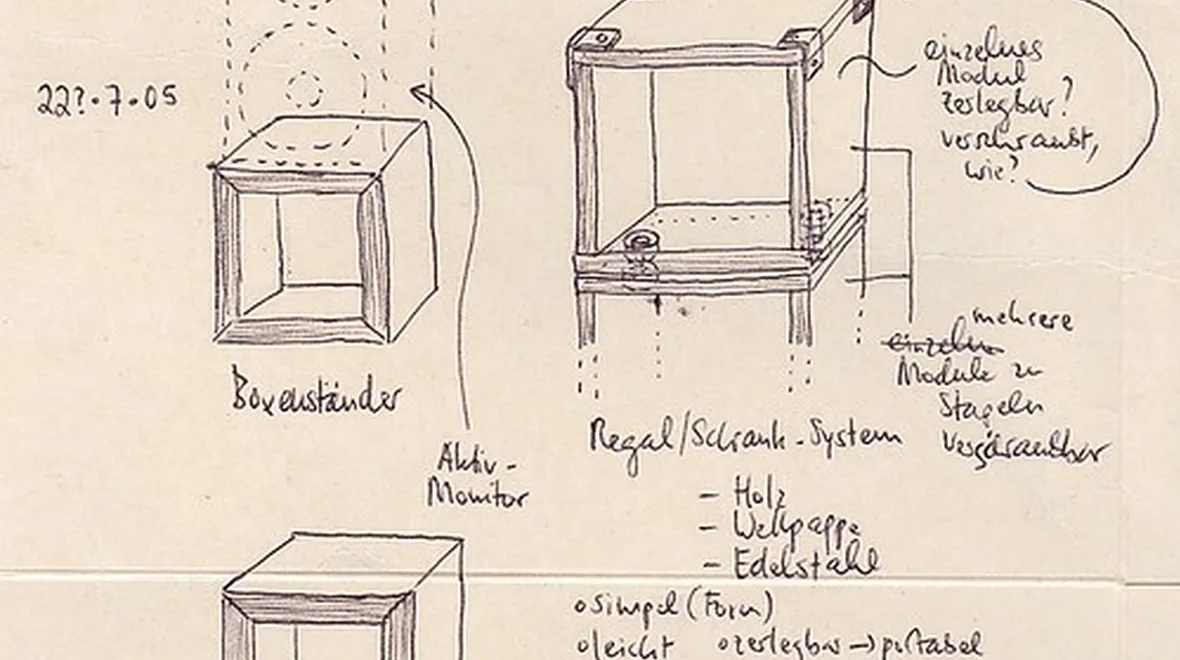 22?.7.05
einzelnes
Modul
zerlegbar?
verschraubt,
wie?
Boxenständer
Aktiv-
Monitor
mehrere
einzelne
Module zu
Stapeln
verschraubbar
Regal/Schrank-System
- Holz
- Wellpappe
- Edelstahl
o Simpel (Form)
o leicht o zerlegbar → portabel